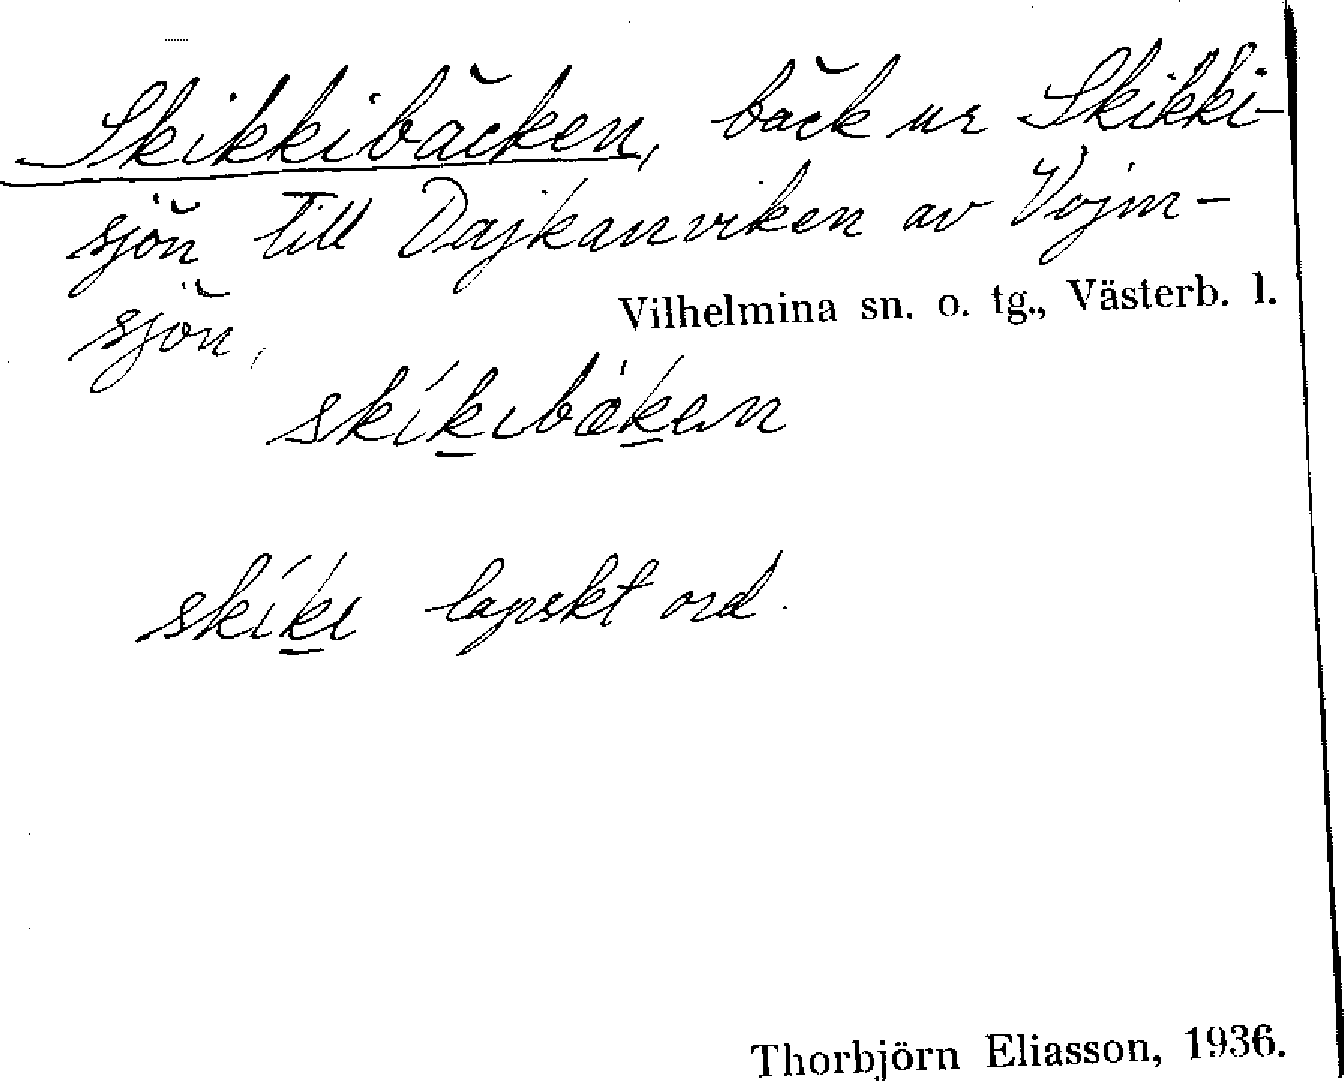 Skikkibäcken, bäck ur Skikki-
sjön till Dajkanviken av Vojm-
sjön,
Vilhelmina sn. o. tg., Västerb. l.
skíkıbäken
skíkı lapskt ord.
Thorbjörn Eliasson, 1936.